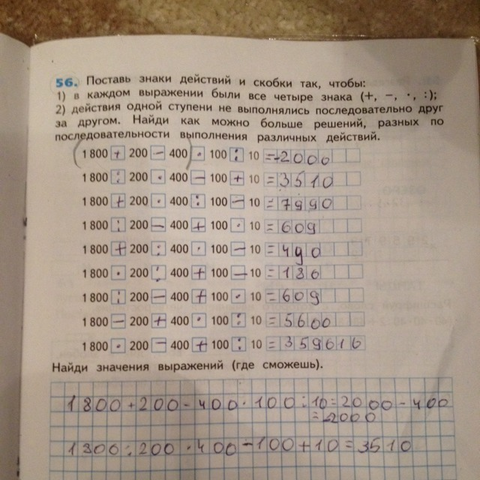 56. Поставь знаки действий и скобки так, чтобы:
1) в каждом выражении были все четыре знака (+, −, ·, :);
2) действия одной ступени не выполнялись последовательно друг
за другом. Найди как можно больше решений, разных по
последовательности выполнения различных действий.
(1 800 + 200 − 400) · 100 : 10 = −2000
1 800 : 200 · 400 − 100 + 10 = 3510
1 800 + 200 · 400 : 100 − 10 = 7990
1 800 : 200 − 400 + 100 · 10 = 609
1 800 + 200 : 400 · 100 − 10 = 490
1 800 · 200 : 400 + 100 − 10 = 130
1 800 : 200 − 400 + 100 · 10 = 609
1 800 − 200 + 400 · 100 : 10 = 5600
1 800 · 200 − 400 + 100 : 10 = 359616
Найди значения выражений (где сможешь).
1800 + 200 − 400 · 100 : 10 = 2000 − 400
= 2000
1300 : 200 · 400 − 100 + 10 = 3510